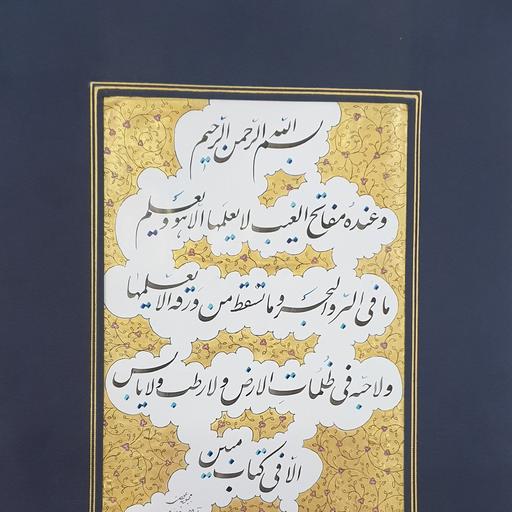 بسم الله الرحمن الرحیم
وعنده مفاتح الغیب لا یعلمها الا هو و یعلم
ما فی البر و البحر و ما تسقط من ورقه الا یعلمها
ولا حبه فی ظلمات الارض ولا رطب ولا یابس
الا فی کتاب مبین